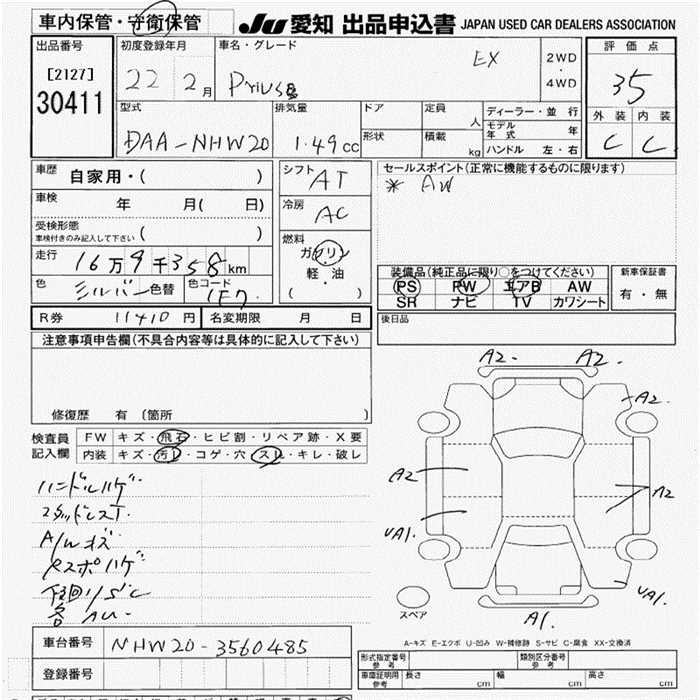 車内保管・守衛保管
JU 愛知 出品申込書 JAPAN USED CAR DEALERS ASSOCIATION
出品番号
[2127]
30411
初度登録年月
22 2月
車名・グレード
Prius EX
2WD
4WD
評価点
35
外装 内装
C C
型式
DAA-NHW20
排気量
1.49cc
ドア
形状
定員 人
積載 kg
ディーラー・並行
モデル年式 年
ハンドル 左・右
車歴
自家用・( )
車検 年 月( 日)
受検形態
車検付きのみ記入して下さい ( )
走行
16万9千358km
色 シルバー 色替 色コード 1F7
シフト AT
冷房 AC
燃料
ガソリン
軽・油
( )
セールスポイント(正常に機能するものに限ります)
* AW
装備品(純正品に限り○をつけてください)
PS PW エアB AW
SR ナビ TV カワシート
新車保証書
有・無
R券 11410円 名変期限 月 日
後日品
注意事項申告欄(不具合内容等は具体的に記入して下さい)
修復歴 有 〔箇所 〕
検査員
記入欄
FW キズ・飛石・ヒビ割・リペア跡・X要
内装 キズ・汚レ・コゲ・穴・スレ・キレ・破レ
ハンドルハゲ
スタッドレスT
A/Wキズ
下回りS C
各 AU
A2 A2
A2
A2
A2
UA1.
UA1.
A1.
スペア
A-キズ E-エクボ U-凹み W-補修跡 S-サビ C-腐食 XX-交換済
車台番号 NHW20-3560485
登録番号
形式指定番号 参考
類別区分番号 参考
車庫証明用 参考 長さ cm 幅 cm 高さ cm